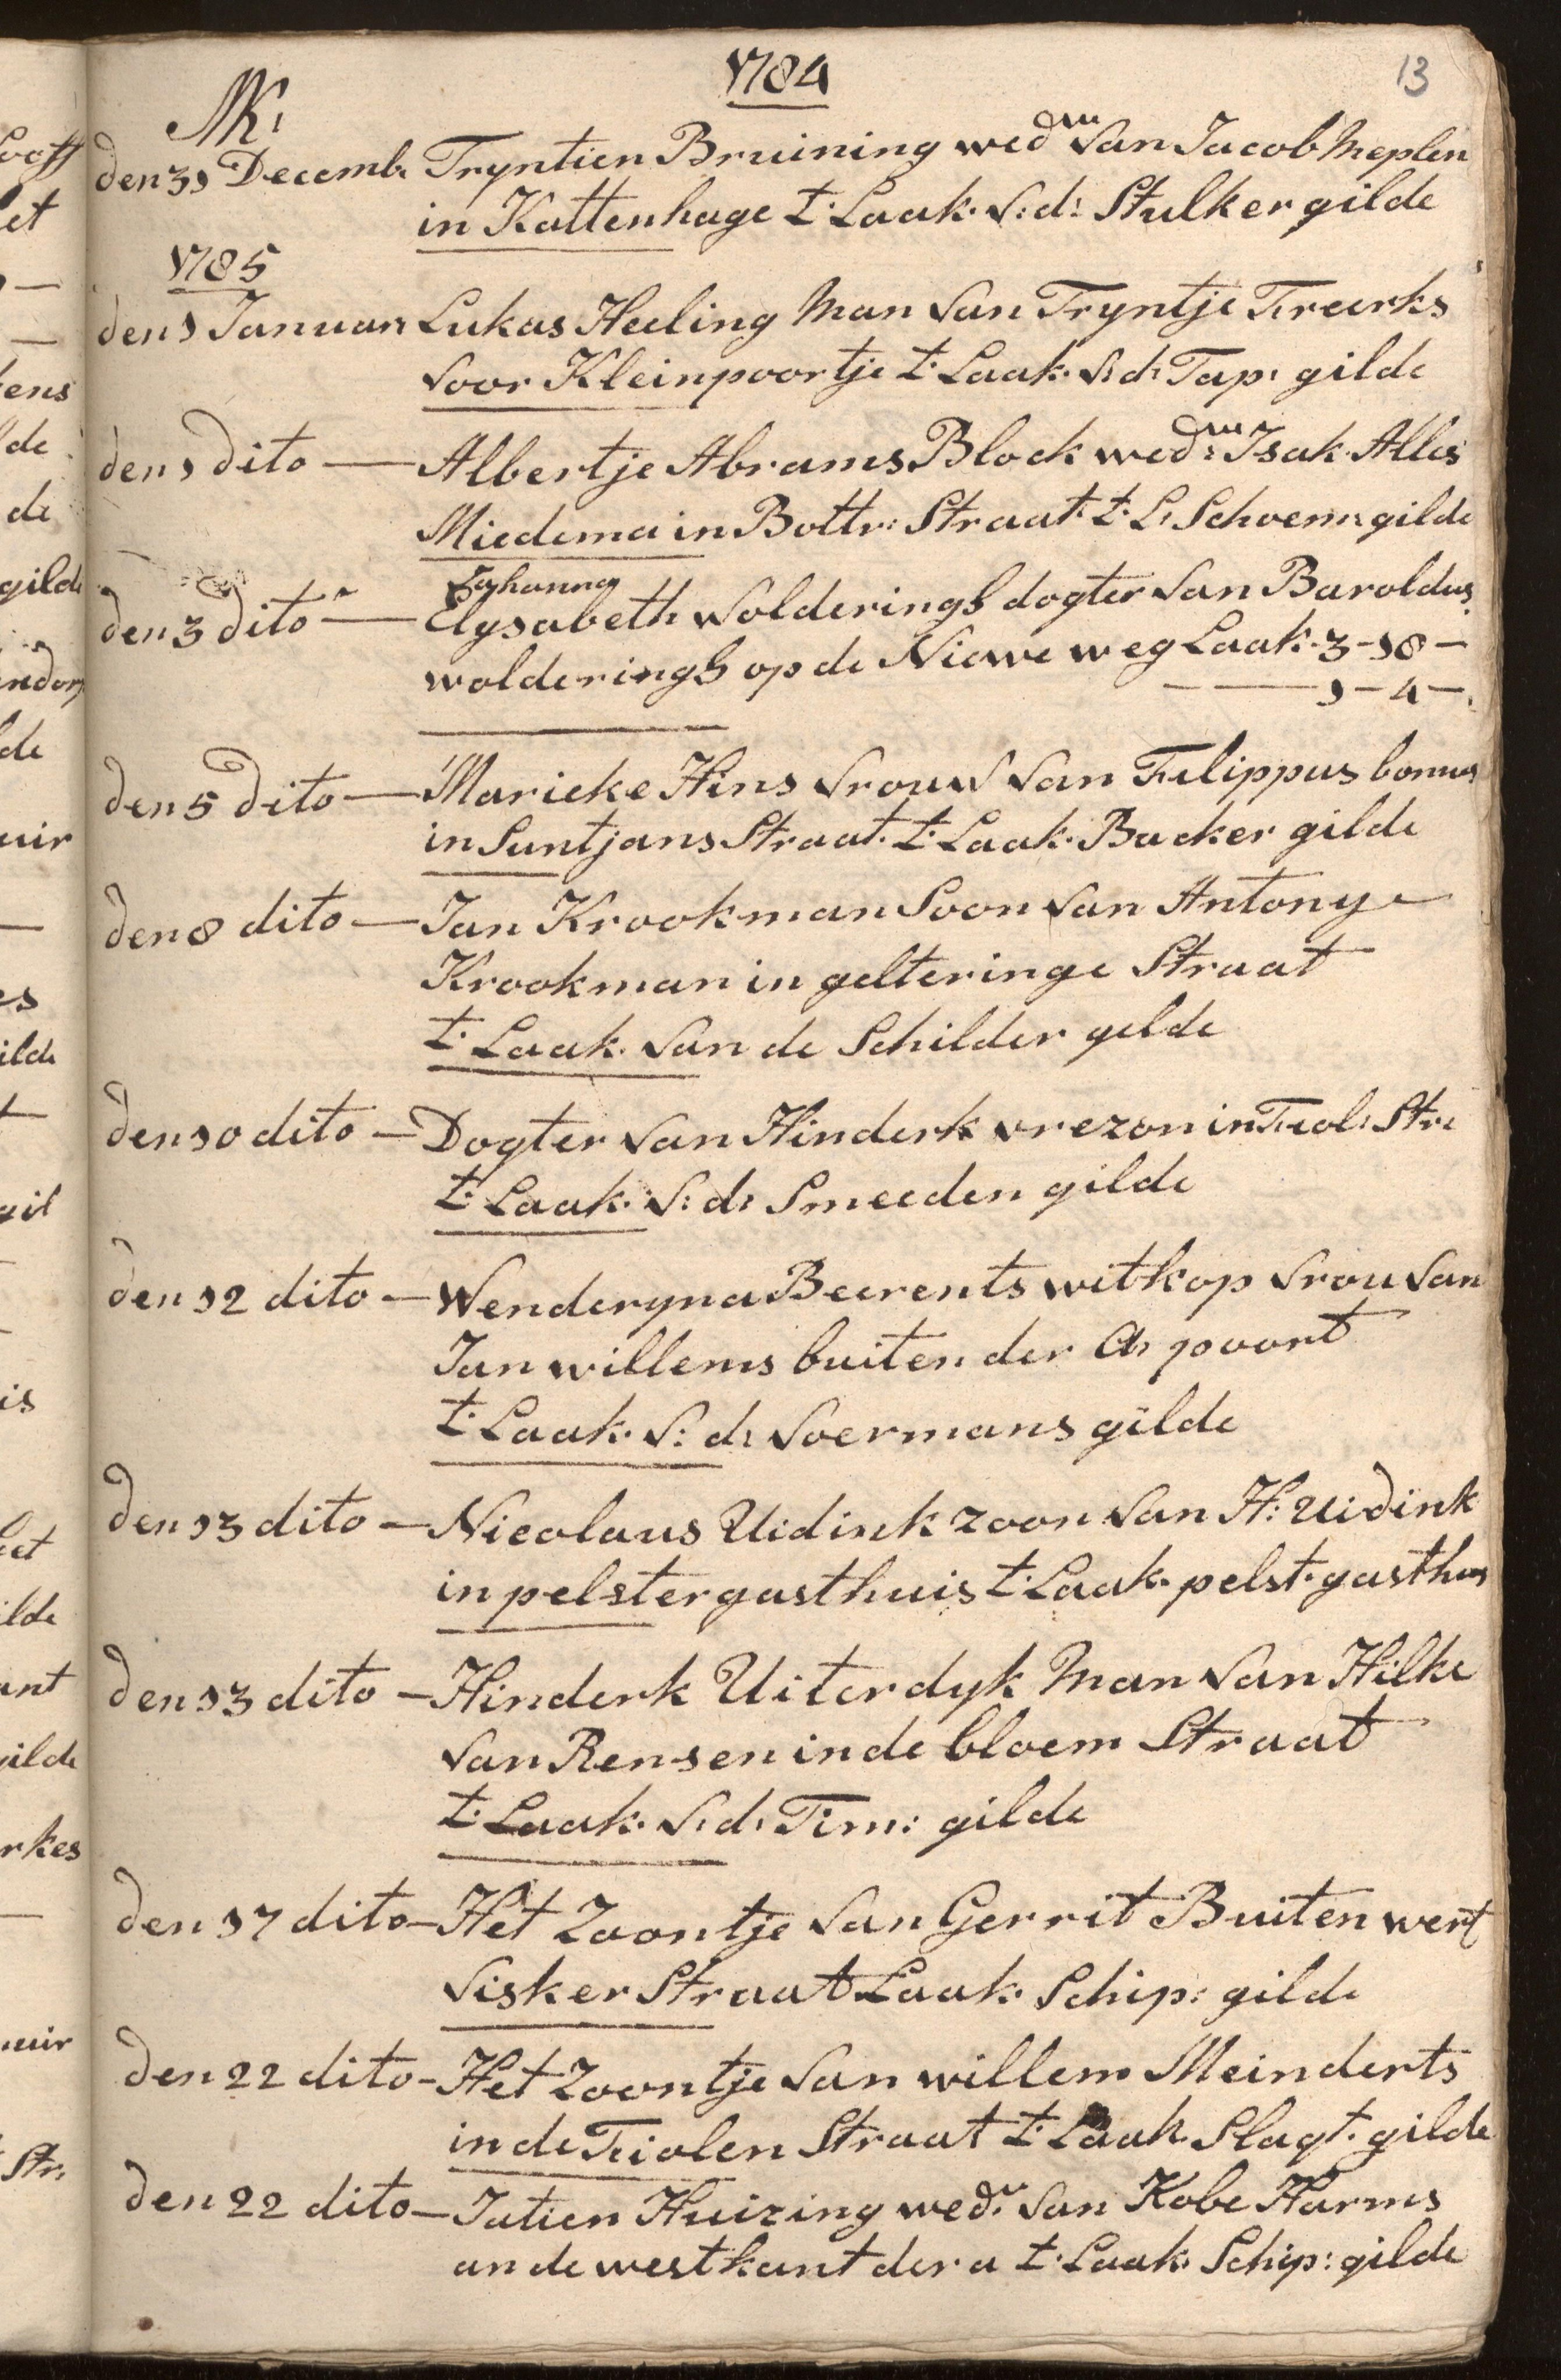 1784
13
MK:
den 31 Decemb: Tryntien Bruining wed van Jacob Meplen
in Kattenhage t: Laak: V: d: Stulker gilde
1785
den 1 Januari Lukas Heeling Man van Tryntje Freerks
voor Kleinpoortje t: Laak: V: d: Tap: gilde
den 1 dito — Albertje Abrams Block wed: Isak Alles
Miedema in Bottr: Straat t: L: Schoenm: gilde
Johanna
den 3 dito — Elysabeth Wolderingh dogter van Baroldus
wolderingh op de Niewe weg Laak: 3-18-
— 1-4-
den 5 dito — Marieke Hins vrouw van Filippus bonnus
in Suntjans Straat t: Laak: Backer gilde
den 8 dito — Jan Krookman Soon van Antony
Krookman in gelteringe Straat
t: Laak: van de Schilder gelde
den 10 dito — Dogter van Hinderk vrezon in Fiol: Str:
t: Laak: V: d: Smeeden gilde
den 12 dito — Wenderyna Beerents witkop vrou van
Jan willems buiten der A: poort
t: Laak: V: d: Voermans gilde
den 13 dito — Nicolaus Uidink zoon van H: Uidink
in pelstergasthuis t: Laak: pelst: gasthus
den 13 dito — Hinderk Uiterdyk Man van Hilke
van Rensen in de bloem Straat
t: Laak: V: d: Tim: gilde
den 17 dito — Het Zoontje van Gerrit Buiten werf
Visker Straat Laak: Schip: gilde
den 22 dito — Het Zoontje van willem Meinderts
in de Fiolen Straat t: Laak: Slagt: gilde
den 22 dito — Jatien Huizing wed: van Kobe Harms
an de westkant der a t: Laak: Schip: gilde